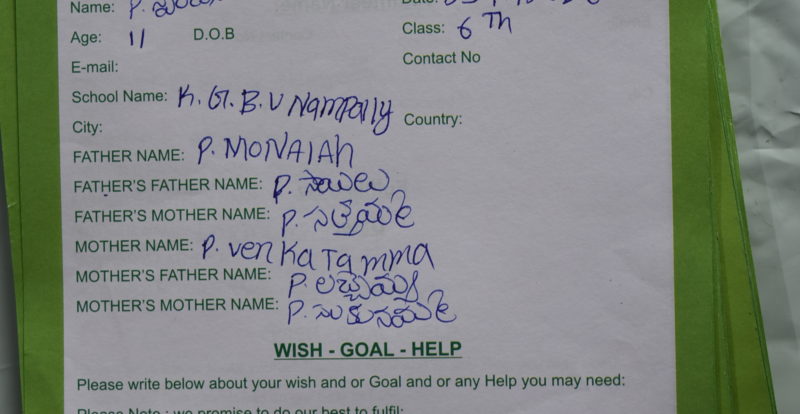 Name: P.
Age: 11 D.O.B Class: 6 Th
E-mail: Contact No
School Name: K. G. B. V Nampally
City: Country:
FATHER NAME: P. MONAIAh
FATHER'S FATHER NAME: P. సాయిలు
FATHER'S MOTHER NAME: P. సత్తెమ్మ
MOTHER NAME: P. venKaTamma
MOTHER'S FATHER NAME: P. లచ్చయ్య
MOTHER'S MOTHER NAME: P.
WISH - GOAL - HELP
Please write below about your wish and or Goal and or any Help you may need:
Please Note : we promise to do our best to fulfil: